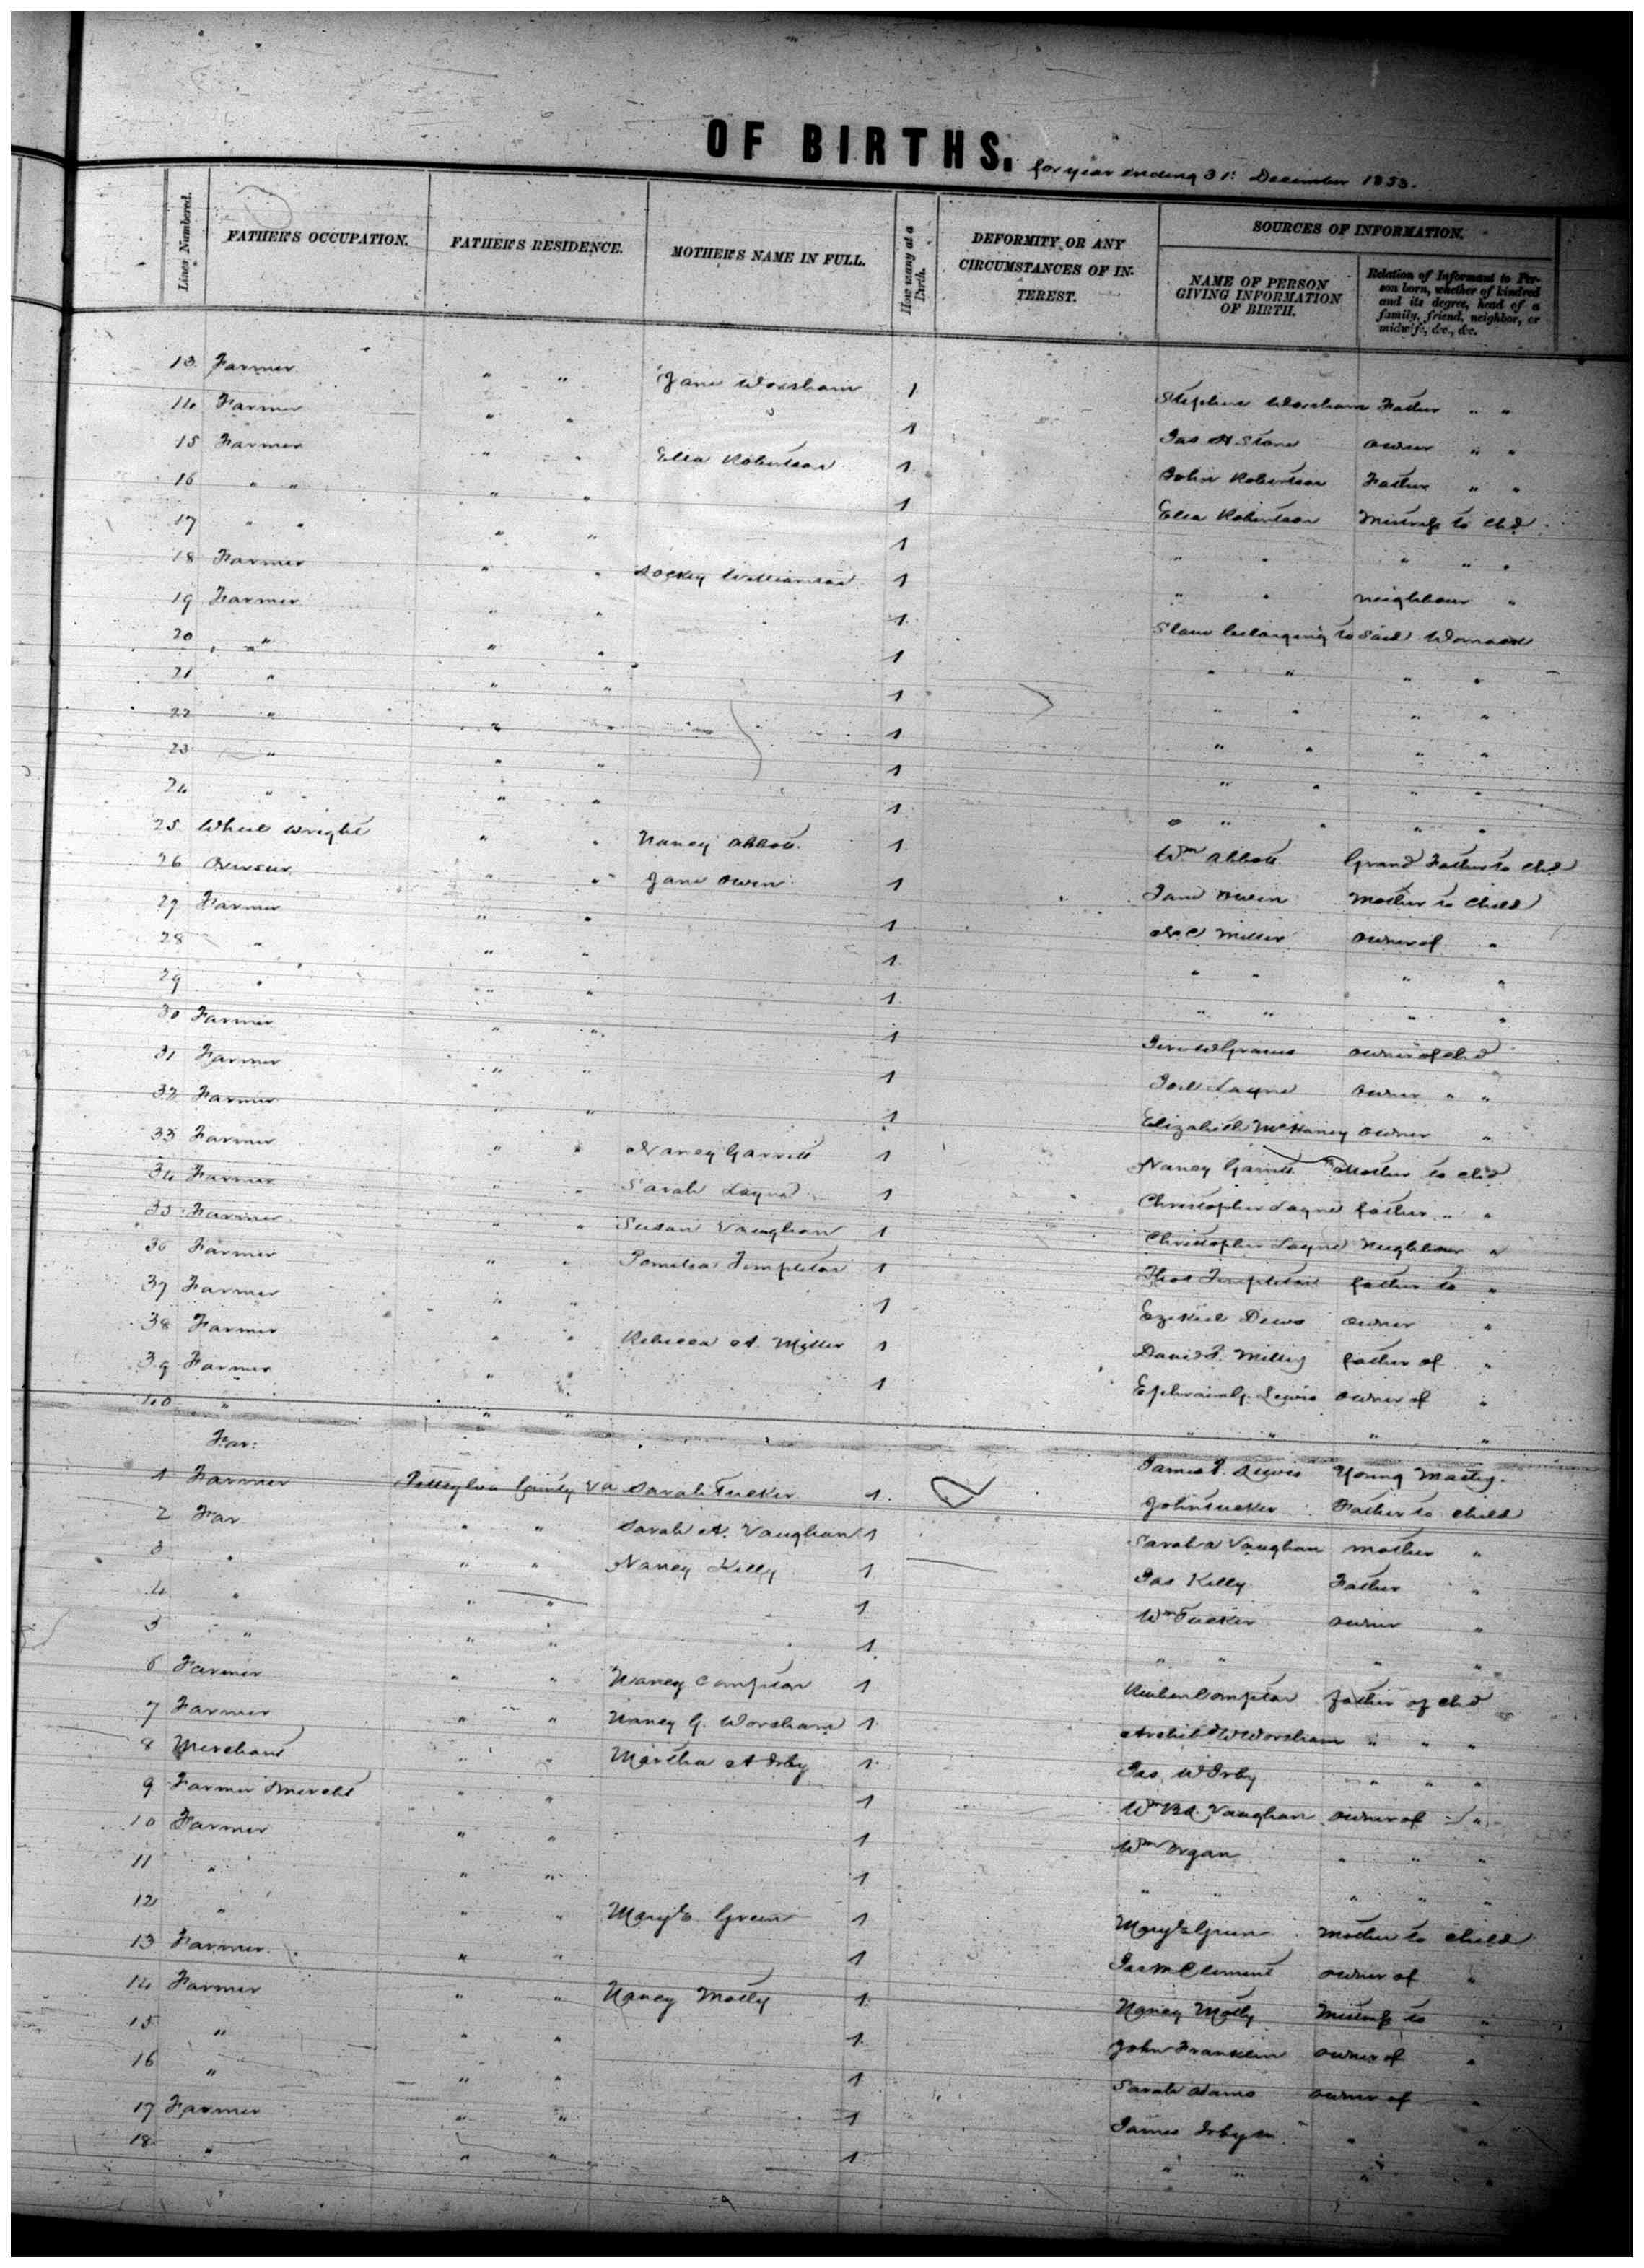 OF BIRTHS. for year ending 31st December 1853.
Lines Numbered. FATHER'S OCCUPATION. FATHER'S RESIDENCE. MOTHER'S NAME IN FULL. How many at a Birth. DEFORMITY OR ANY CIRCUMSTANCES OF INTEREST. SOURCES OF INFORMATION.
NAME OF PERSON GIVING INFORMATION OF BIRTH. Relation of Informant to Person born, whether of kindred and its degree, head of a family, friend, neighbor, or midwife, &c., &c.
13 Farmer " " Jane Worsham 1 Stephen Worsham Father " "
14 Farmer " " 1 Jas H Stone owner " "
15 Farmer " " Eliza Robertson 1 John Robertson Father " "
16 " " " " 1 Eliza Robertson Mistress to chd
17 " " " " 1 " " " " "
18 Farmer " " Williamson 1 " " neighbour "
19 Farmer " " 1 Slave belonging to said Woman
20 " " " 1 " " " "
21 " " " 1 " " " "
22 " " " 1 " " " "
23 " " " 1 " " " "
24 " " " 1 " " " "
25 Wheel wright " " Nancy Abbott 1 Wm Abbott Grand Father to chd
26 Overseer " " Jane Owen 1 Jane Owen Mother to child
27 Farmer " " 1 Miller owner of "
28 " " " 1 " " " "
29 " " " 1 " " " "
30 Farmer " " 1 Graves owner of chd
31 Farmer " " 1 Joel Layne owner " "
32 Farmer " " 1 Elizabeth McHaney owner "
33 Farmer " " Nancy Garrett 1 Nancy Garrett Mother to chd
34 Farmer " " Sarah Layne 1 Christopher Layne father " "
35 Farmer " " Susan Vaughan 1 Christopher Layne Neighbour "
36 Farmer " " Templeton 1 Thos Templeton father to "
37 Farmer " " 1 Ezekiel Dews owner "
38 Farmer " " Rebecca A. Miller 1 David T. Miller father of "
39 Farmer " " 1 Ephraim G. Lewis owner of "
40 " " " " " " "
Far: James P. Lewis Young Master.
1 Farmer Pittsylva County Va Sarah Tucker 1 John Tucker Father to child
2 Far " " Sarah A. Vaughan 1 Sarah A Vaughan mother "
3 " " " Nancy Kelly 1 Jas Kelly Father "
4 " " " 1 Wm Tucker owner "
5 " " " 1 " " " "
6 Farmer " " Nancy Compton 1 Reuben Compton father of chd
7 Farmer " " Nancy G. Worsham 1 Archibd W Worsham " " "
8 Merchant " " Martha A Irby 1 Jas W Irby " " "
9 Farmer & mercht " " 1 Wm B A. Vaughan owner of "
10 Farmer " " 1 Wm Organ " " "
11 " " " 1 " " " " "
12 " " " Mary E Green 1 Mary E Green Mother to child
13 Farmer " " 1 Jas M Clement owner of "
14 Farmer " " Nancy Motly 1 Nancy Motly Mistress to "
15 " " " 1 John Franklin owner of "
16 " " " 1 Sarah Adams owner of "
17 Farmer " " 1 James Irby " "
18 " " " 1 " " " "